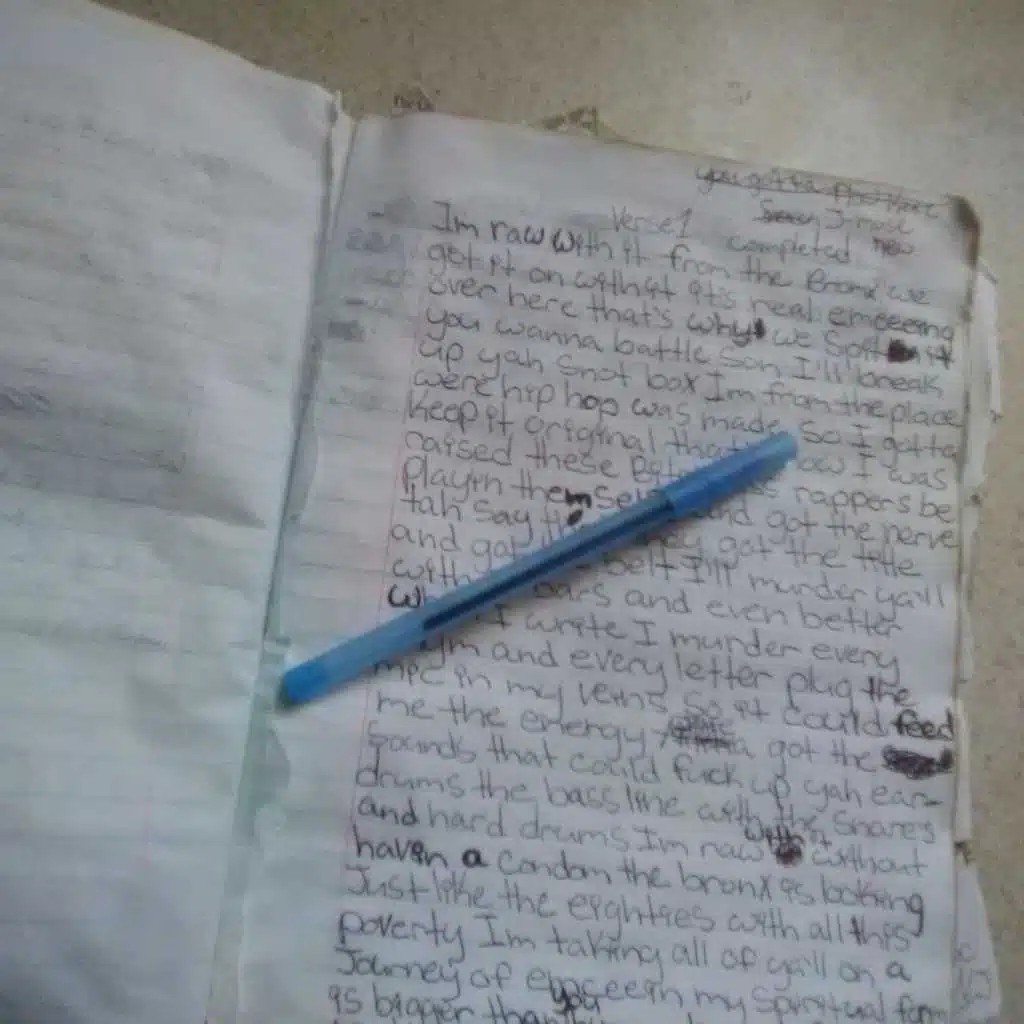 Verse 1
J-mose
completed new
Im raw with it from the Bronx we
got it on withit it's real emceeing
over here that's why we spit it
you wanna battle son I'll break
up yah snot box Im from the place
were hip hop was made so I gotta
keep it original that how I was
raised these rappers be
playin themsel got the nerve
tah say the got the title
and got belt I'll murder ya'll
with bars and even better
I write I murder every
and every letter plug the
mic in my veins so it could feed
me the energy got the
sounds that could fuck up yah ear
drums the bass line with the snares
and hard drums Im raw with it without
havin a condom the bronx is looking
Just like the eighties with all this
poverty Im taking all of ya'll on a
Journey of emceein my spiritual form
is bigger than you